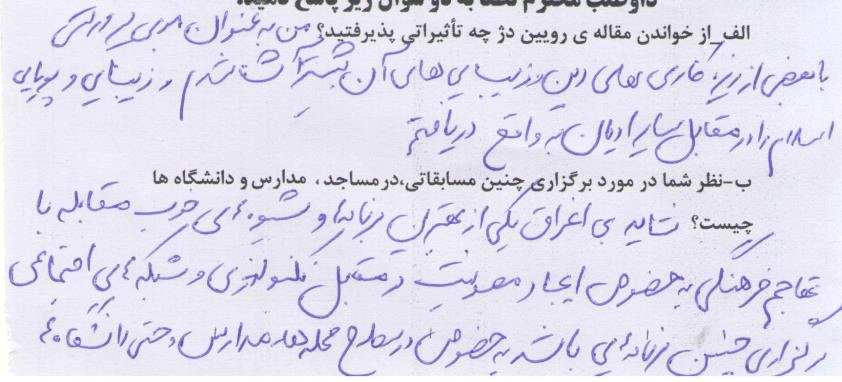 داوطلب محترم لطفا به دو سوال زیر پاسخ دهید:
الف_از خواندن مقاله ی رویین دژ چه تأثیراتی پذیرفتید؟ من به عنوان مربی پرورشی
با بعضی از ریزه کاری های دین و زیبایی های آن بیشتر آشنا شدم و زیبایی و پویایی
اسلام را در مقابل سایر ادیان به واقع دریافتم
ب-نظر شما در مورد برگزاری چنین مسابقاتی،در مساجد، مدارس و دانشگاه ها
چیست؟ شاید بی اغراق یکی از بهترین برنامه ها و شیوه های خوب مقابله با
تهاجم فرهنگی به خصوص ایجاد مصونیت در مقابل تکنولوژی و شبکه های اجتماعی
برگزاری چنین برنامه هایی باشد به خصوص در سطح محله ها، مدارس و حتی دانشگاه ها